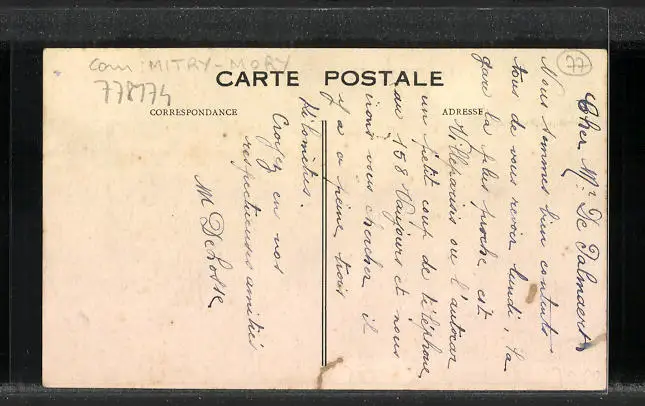 com: MITRY-MORY
778174
77
CARTE POSTALE
CORRESPONDANCE
ADRESSE
Cher Mr De Palmaert
Nous sommes bien contents
tous de vous revoir lundi, la
gare la plus proche est
Villeparisis ou l'autocar
un petit coup de téléphone
au 158 Vaujours et nous
irons vous chercher il
y a a peine trois
kilomètres.
Croyez en nos
respectueuses amitiés
M Delosse